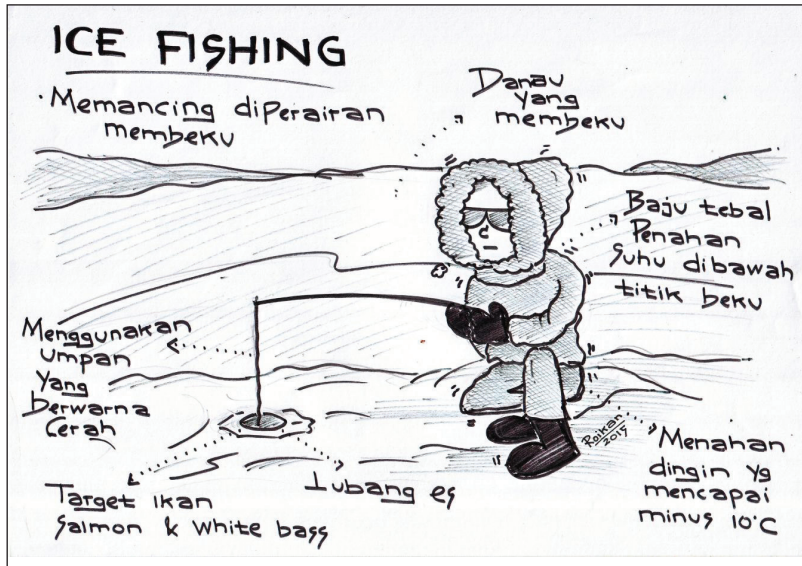 ICE FISHING
Memancing diperairan
membeku
Danau
yang
membeku
Baju tebal
Penahan
suhu dibawah
titik beku
Menggunakan
umpan
yang
berwarna
cerah
Target ikan
salmon & white bass
Lubang es
Menahan
dingin yg
mencapai
minus 10°C
Roikan
2015